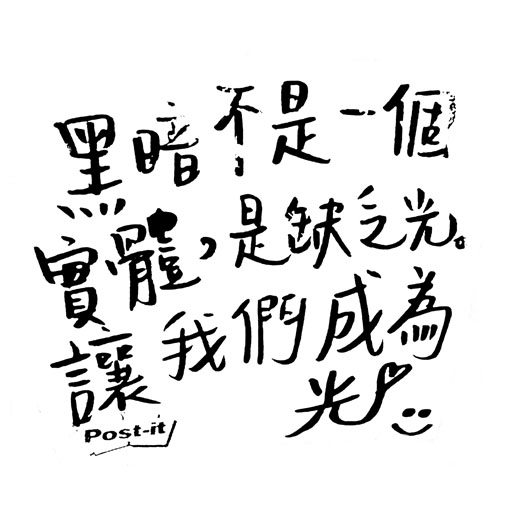 黑暗不是一個
實體，是缺乏光。
讓我們成為
光
Post-it